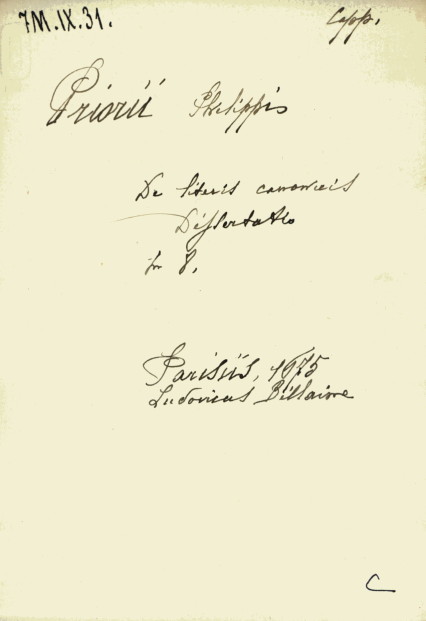 7M.IX.31.
Capp.
Priorii Philippis
De literis canonicis
Dissertatio
in 8.
Parisiis, 1675
Ludovicus Billaine
C